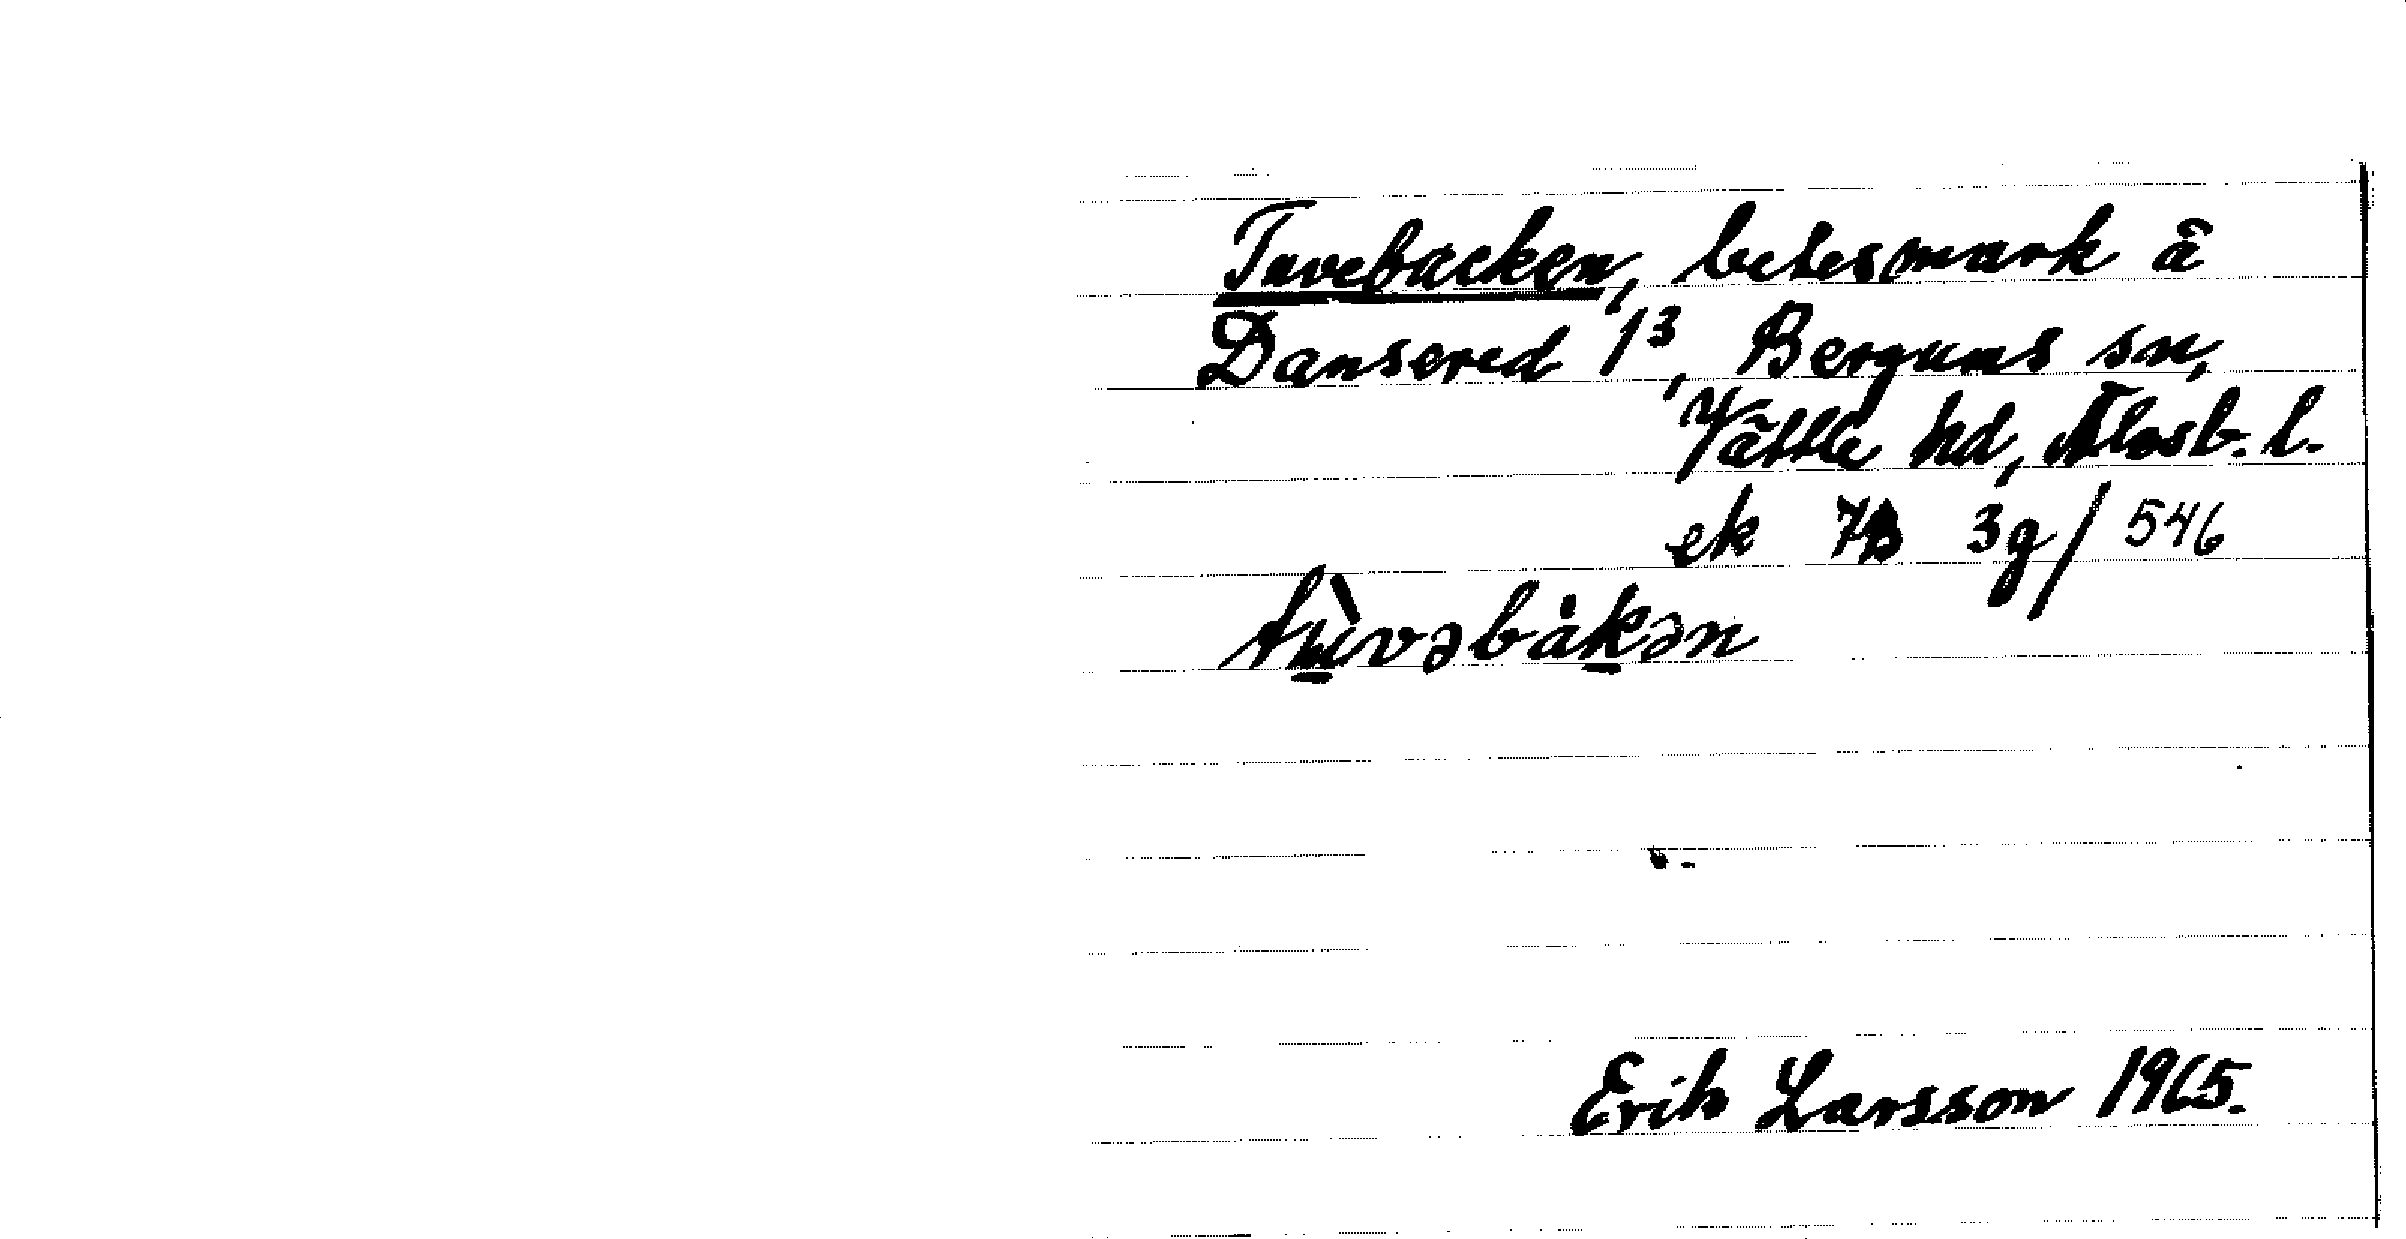 Tuvebacken, betesmark å
Dansered 1³, Bergums sn,
Vättle hd, Älvsb. l.
ek 7B 3g/546
tùvəbåkən
Erik Larsson 1965.